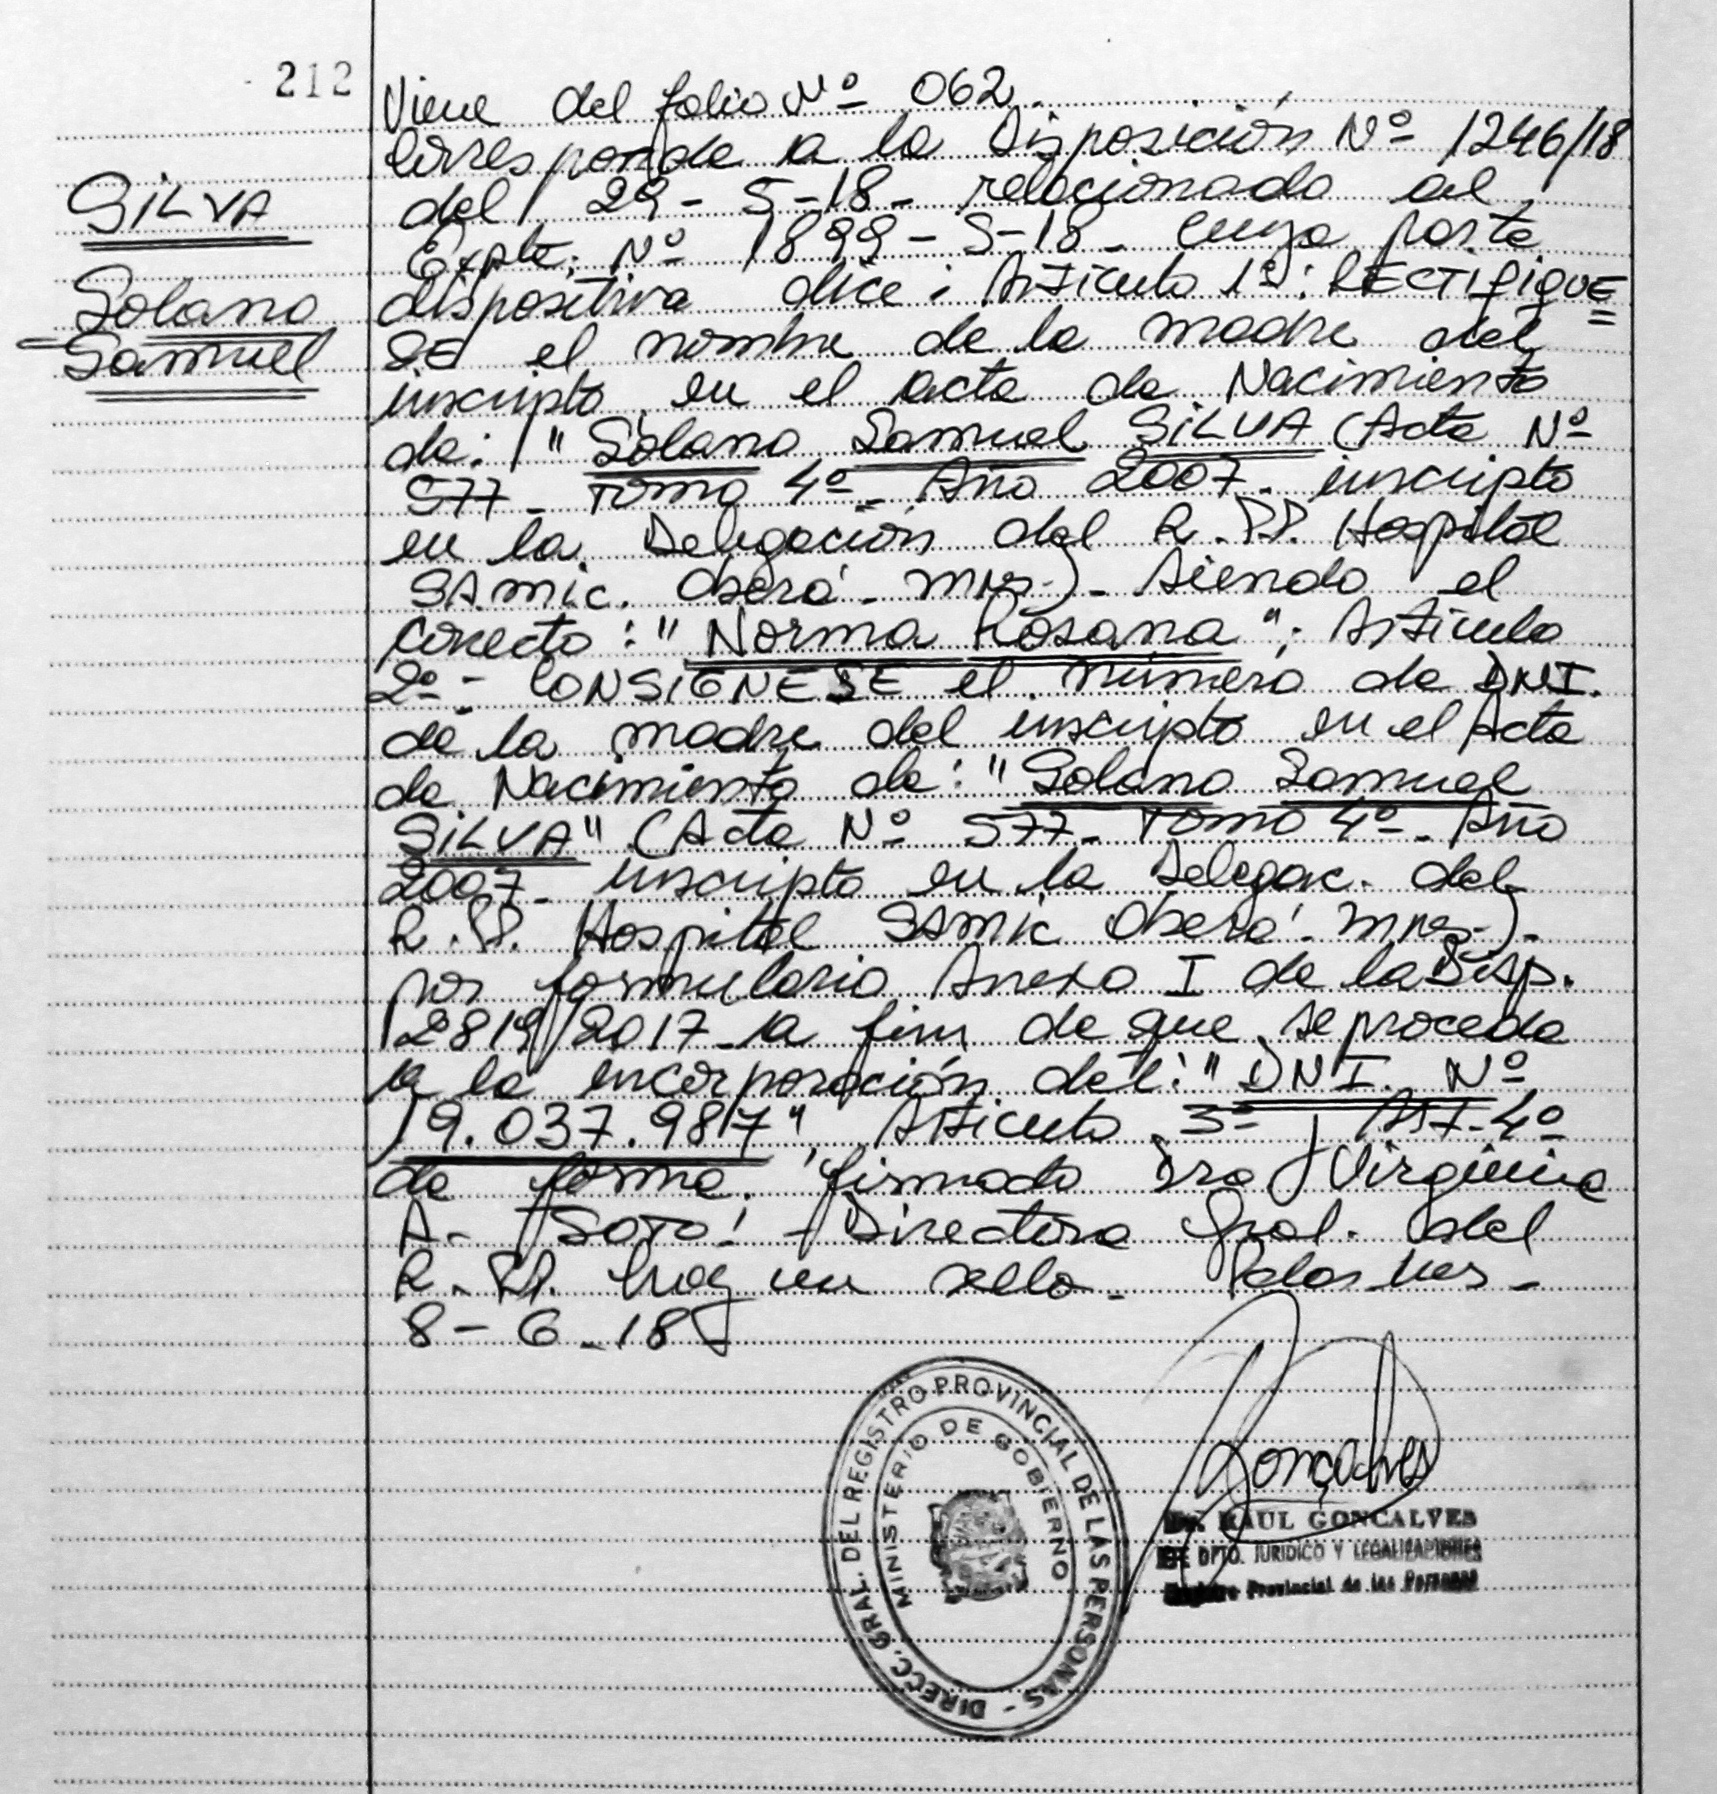 212
SILVA
Solano
Samuel
Viene del folio Nº 062.
Corresponde a la Disposición Nº 1246/18
del 29-5-18- relacionado al
Expte. Nº 1899-S-18- cuya parte
dispositiva dice: Artículo 1º: RECTIFIQUE=
SE el nombre de la madre del
inscripto en el acta de Nacimiento
de: "Solano Samuel SILVA (Acta Nº
577- Tomo 4º- Año 2007- inscripto
en la Delegación del R.PP. Hospital
SAMIC. Oberá- Mnes-)- siendo el
correcto: "Norma Rosana"; Artículo
2º- CONSIGNESE el número de DNI.
de la madre del inscripto en el Acta
de Nacimiento de: "Solano Samuel
SILVA" (Acta Nº 577- Tomo 4º- Año
2007- inscripto en la Delegac. del
R.PP. Hospital SAMIC Oberá- Mnes-)-
por formulario Anexo I de la Disp.
2819/2017- a fin de que se proceda
a la incorporación del: "DNI. Nº
19.037.987", Artículo 3º Art-4º
de forma. firmado Dra Virginia
A. SOTO! - Directora Gral. del
R.PP. hay un sello- Posadas Mnes-
8-6-18
DIRECC. GRAL. DEL REGISTRO PROVINCIAL DE LAS PERSONAS -
MINISTERIO DE GOBIERNO
Gonçalves
Dr. RAUL GONCALVES
DPTO. JURIDICO Y LEGALIZACIONES
Registro Provincial de las Personas